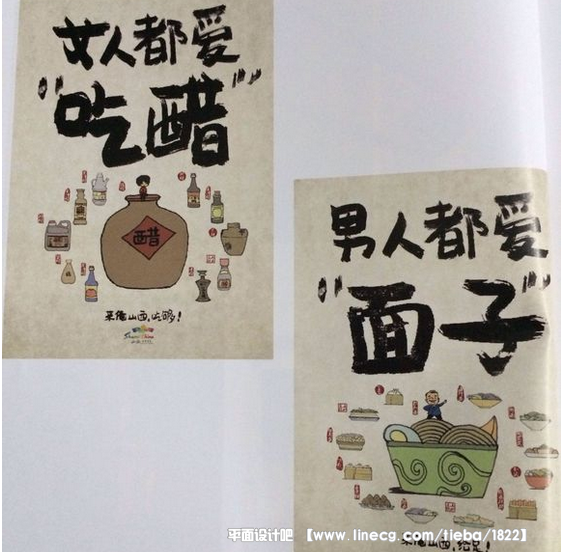 女人都爱
"吃醋"
醋
来倒山西,吃够!
男人都爱
"面子"
来倒山西,给足!
平面设计吧 【www.linecg.com/tieba/1822】